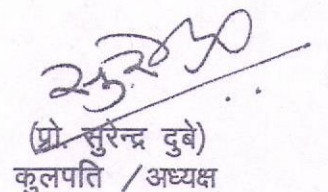 (प्रो. सुरेन्द्र दुबे)
कुलपति / अध्यक्ष